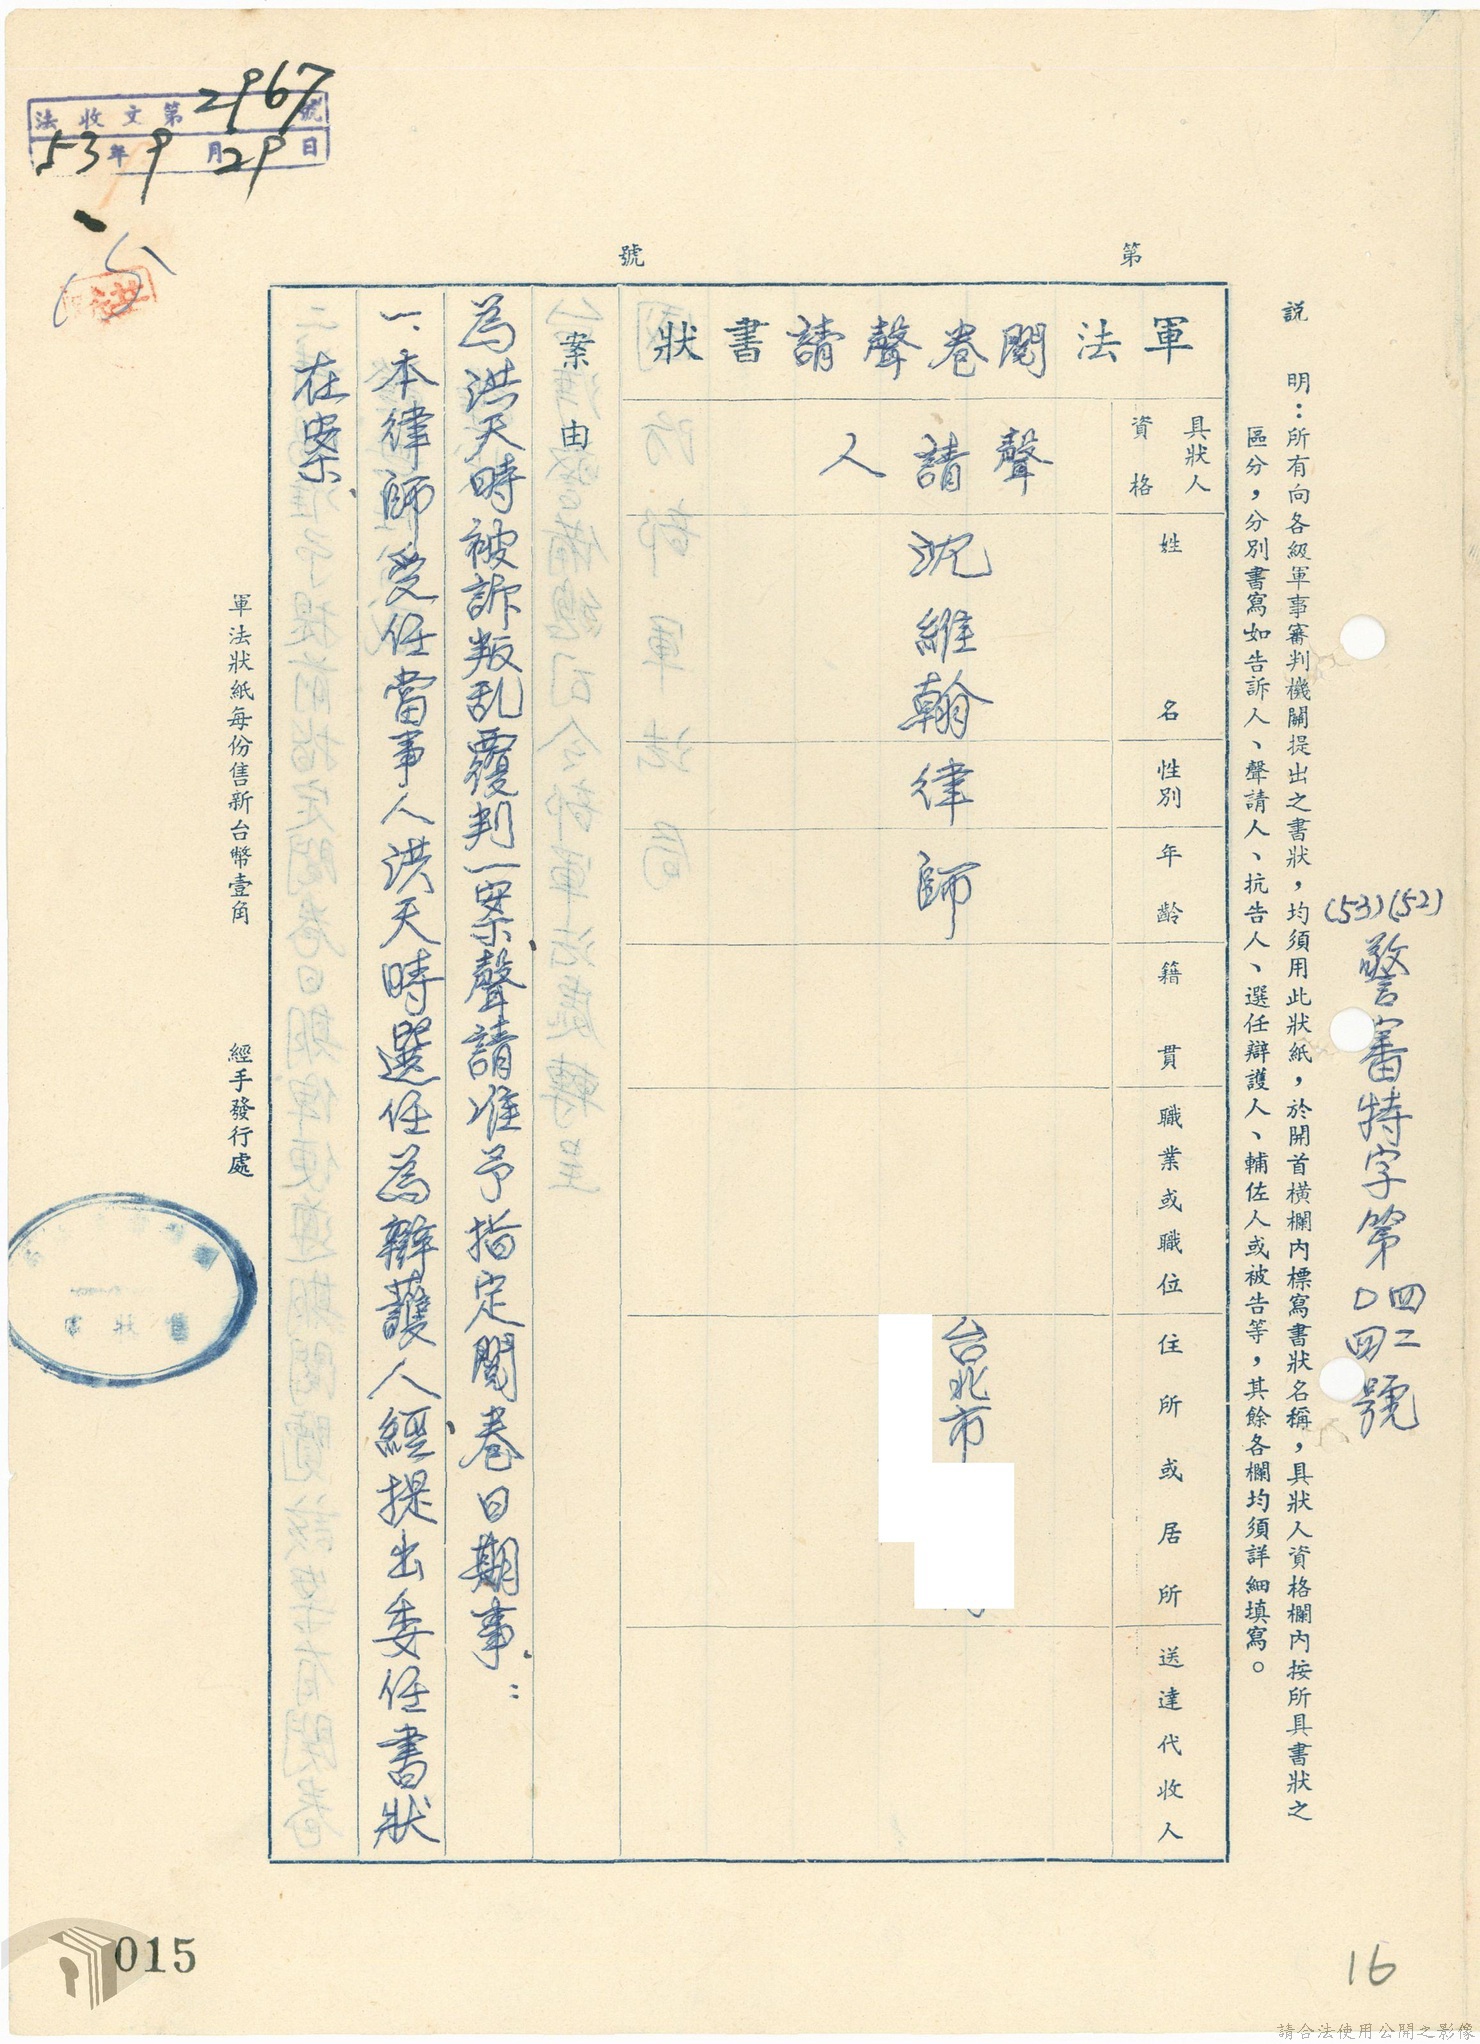 (53)(52)警審特字第四二〇四四號
說　明：所有向各級軍事審判機關提出之書狀，均須用此狀紙，於開首橫欄內標寫書狀名稱，具狀人資格欄內按所具書狀之
區分，分別書寫如告訴人、聲請人、抗告人、選任辯護人、輔佐人或被告等，其餘各欄均須詳細填寫。
第　號
軍法閱卷聲請書狀
具狀人資格　姓名　性別　年齡　籍貫　職業或職位　住所或居所　送達代收人
聲請人　沈維翰律師　台北市
案由
為洪天時被訴叛乱覆判一案、聲請准予指定閱卷日期事、：
一、本律師受任當事人洪天時選任為辯護人、經提出委任書狀
在案、
軍法狀紙每份售新台幣壹角　經手發行處
法收文第2967號
53年9月29日
015
16
請合法使用公開之影像